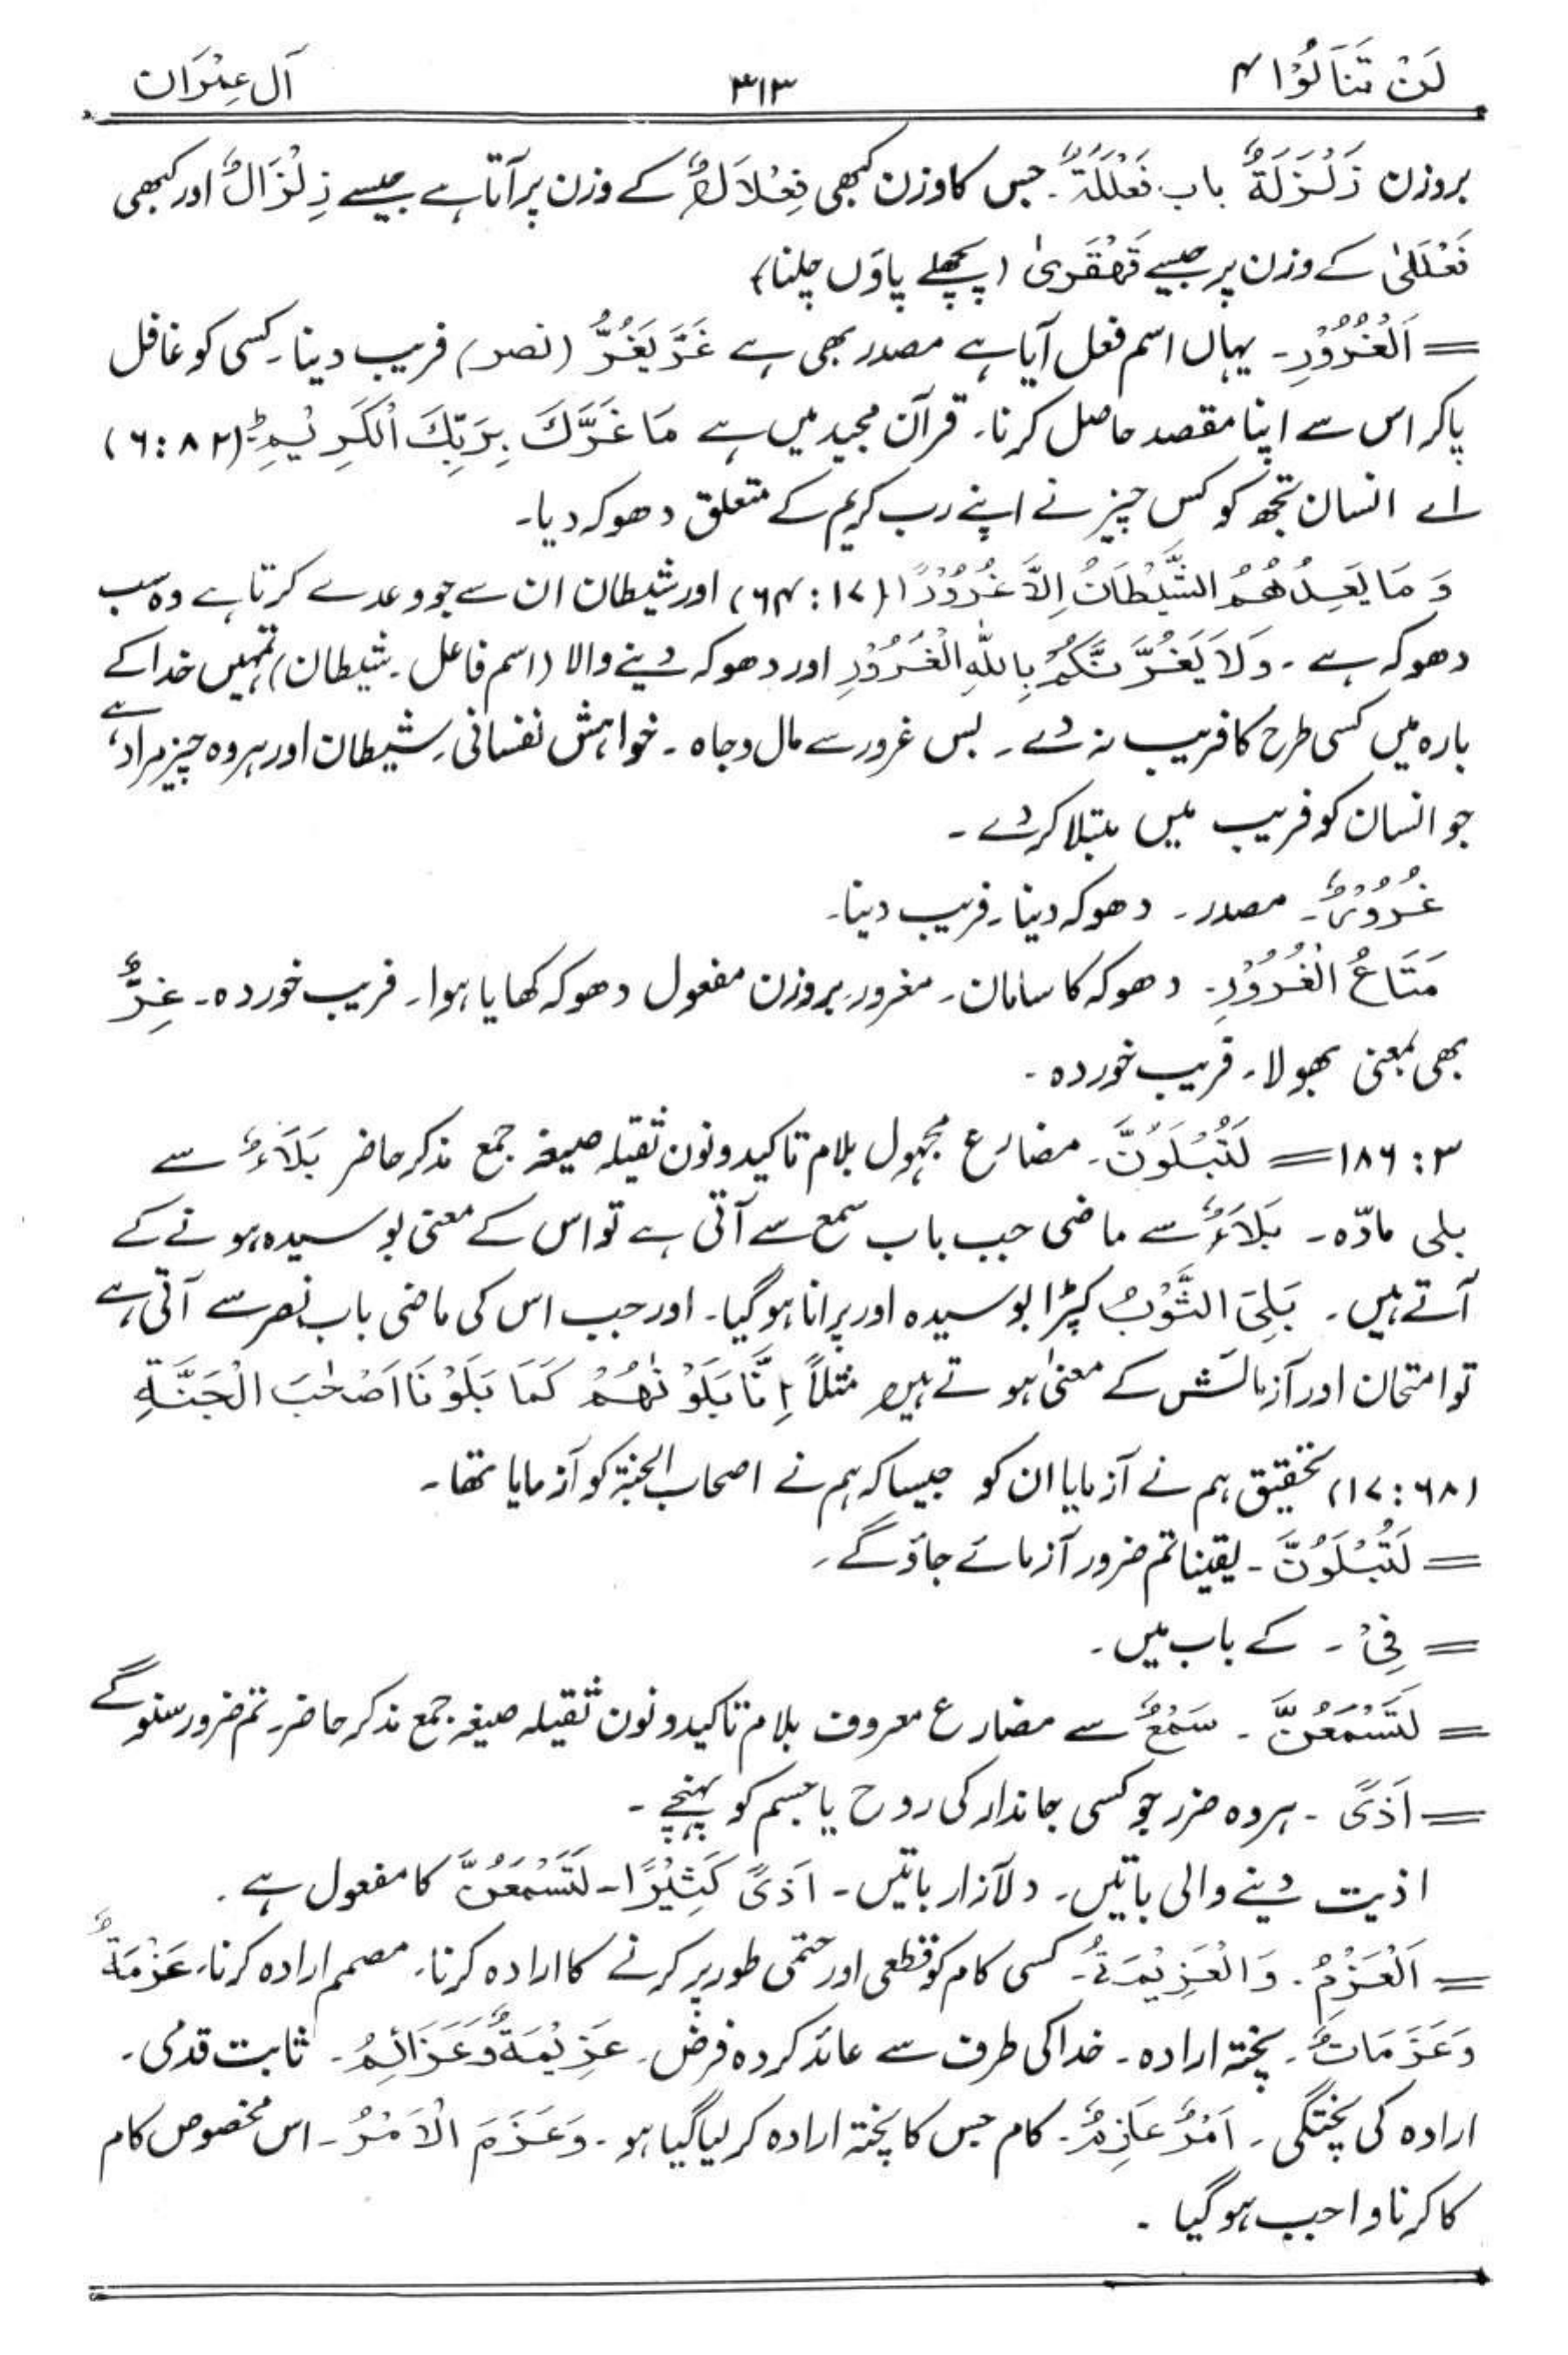 لَنْ تَنَالُوْا ۴ ۳۱۳ آلِ عِمْرَان
بروزن زَلْزَلَةٌ باب فَعْلَلَةٌ۔ جس کا وزن کبھی فِعْلَالٌ کے وزن پر آتا ہے جیسے زِلْزَالٌ اور کبھی
فَعْلَلیٰ کے وزن پر جیسے قَهْقَریٰ (پچھلے پاؤں چلنا)
= اَلْغُرُوْرِ۔ یہاں اسم فعل آیا ہے مصدر بھی ہے غَرَّ یَغُرُّ (نصر) فریب دینا۔ کسی کو غافل
پاکر اس سے اپنا مقصد حاصل کرنا۔ قرآن مجید میں ہے مَا غَرَّكَ بِرَبِّكَ الْكَرِيْمِ (۸۲: ۶)
اے انسان تجھ کو کس چیز نے اپنے رب کریم کے متعلق دھوکہ دیا۔
وَ مَا يَعِدُهُمُ الشَّيْطَانُ اِلَّا غُرُوْرًا (۱۷: ۶۴) اور شیطان ان سے جو وعدے کرتا ہے وہ سب
دھوکہ ہے۔ وَلَا يَغُرَّنَّكُمْ بِاللّٰهِ الْغَرُوْرِ اور دھوکہ دینے والا (اسم فاعل۔ شیطان) تمہیں خدا کے
بارہ میں کسی طرح کا فریب نہ دے۔ بس غرور سے مال و جاہ۔ خواہش نفسانی۔ شیطان اور ہر وہ چیز مراد ہے
جو انسان کو فریب میں مبتلا کر دے۔
غُرُوْرٌ۔ مصدر۔ دھوکہ دینا۔ فریب دینا۔
مَتَاعُ الْغُرُوْرِ۔ دھوکہ کا سامان۔ مغرور۔ بروزن مفعول دھوکہ کھایا ہوا۔ فریب خوردہ۔ غِرٌّ
بھی بمعنی بھولا۔ فریب خوردہ۔
۳: ۱۸۶ = لَتُبْلَوُنَّ۔ مضارع مجہول بلام تاکید و نون ثقیلہ صیغہ جمع مذکر حاضر بَلَاءٌ سے
بلی مادّہ۔ بَلَاءٌ سے ماضی جب باب سمع سے آتی ہے تو اس کے معنی بوسیدہ ہونے کے
آتے ہیں۔ بَلِيَ الثَّوْبُ کپڑا بوسیدہ اور پرانا ہو گیا۔ اور جب اس کی ماضی باب نصر سے آتی ہے
تو امتحان اور آزمائش کے معنیٰ ہوتے ہیں مثلاً اِنَّا بَلَوْنٰهُمْ كَمَا بَلَوْنَا اَصْحٰبَ الْجَنَّةِ
(۶۸: ۱۷) تحقیق ہم نے آزمایا ان کو جیسا کہ ہم نے اصحاب الجنۃ کو آزمایا تھا۔
= لَتُبْلَوُنَّ۔ یقینا تم ضرور آزمائے جاؤ گے۔
= فِیْ۔ کے باب میں۔
= لَتَسْمَعُنَّ۔ سَمْعٌ سے مضارع معروف بلام تاکید و نون ثقیلہ صیغہ جمع مذکر حاضر۔ تم ضرور سنو گے
= اَذًی۔ ہر وہ ضرر جو کسی جاندار کی روح یا جسم کو پہنچے۔
اذیت دینے والی باتیں۔ دلآزار باتیں۔ اَذًی كَثِيْرًا۔ لَتَسْمَعُنَّ کا مفعول ہے۔
= اَلْعَزْمُ۔ وَالْعَزِيْمَةُ۔ کسی کام کو قطعی اور حتمی طور پر کرنے کا ارادہ کرنا۔ مصمم ارادہ کرنا۔ عَزْمَةٌ
وَ عَزَمَاتٌ۔ پختہ ارادہ۔ خدا کی طرف سے عائد کردہ فرض۔ عَزِيْمَةٌ وَعَزَائِمُ۔ ثابت قدمی۔
ارادہ کی پختگی۔ اَمْرٌ عَازِمٌ۔ کام جس کا پختہ ارادہ کر لیا گیا ہو۔ وَعَزَمَ الْاَمْرُ۔ اس مخصوص کام
کا کرنا واجب ہو گیا۔